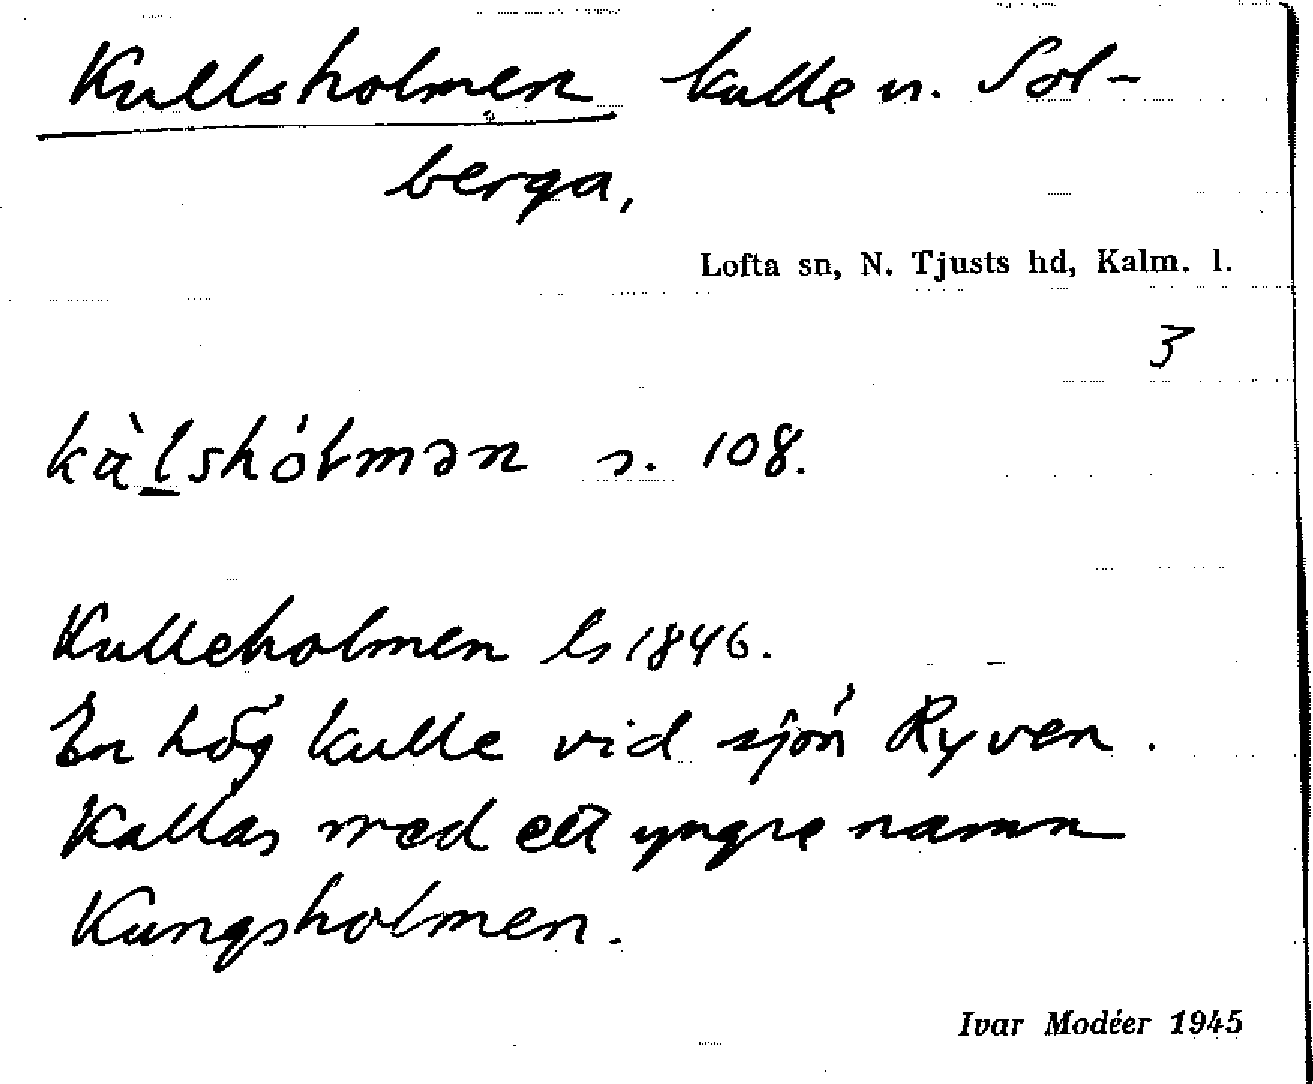 Kullsholmen kulle n. Sol-
berga,
Lofta sn, N. Tjusts hd, Kalm. l.
3
kàlshólmən s. 108.
Kulleholmen ls 1846.
En hög kulle vid sjön Ryven.
Kallas med ett yngre namn
Kungsholmen.
Ivar Modéer 1945